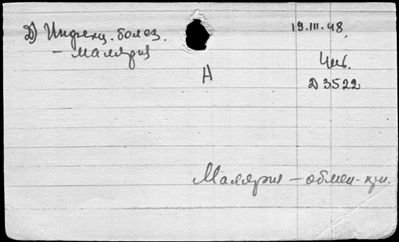 Д) Инфекц. болез.
19.III.48.
– малярия
Инв.
А
Д 3522
Малярия – обмен-